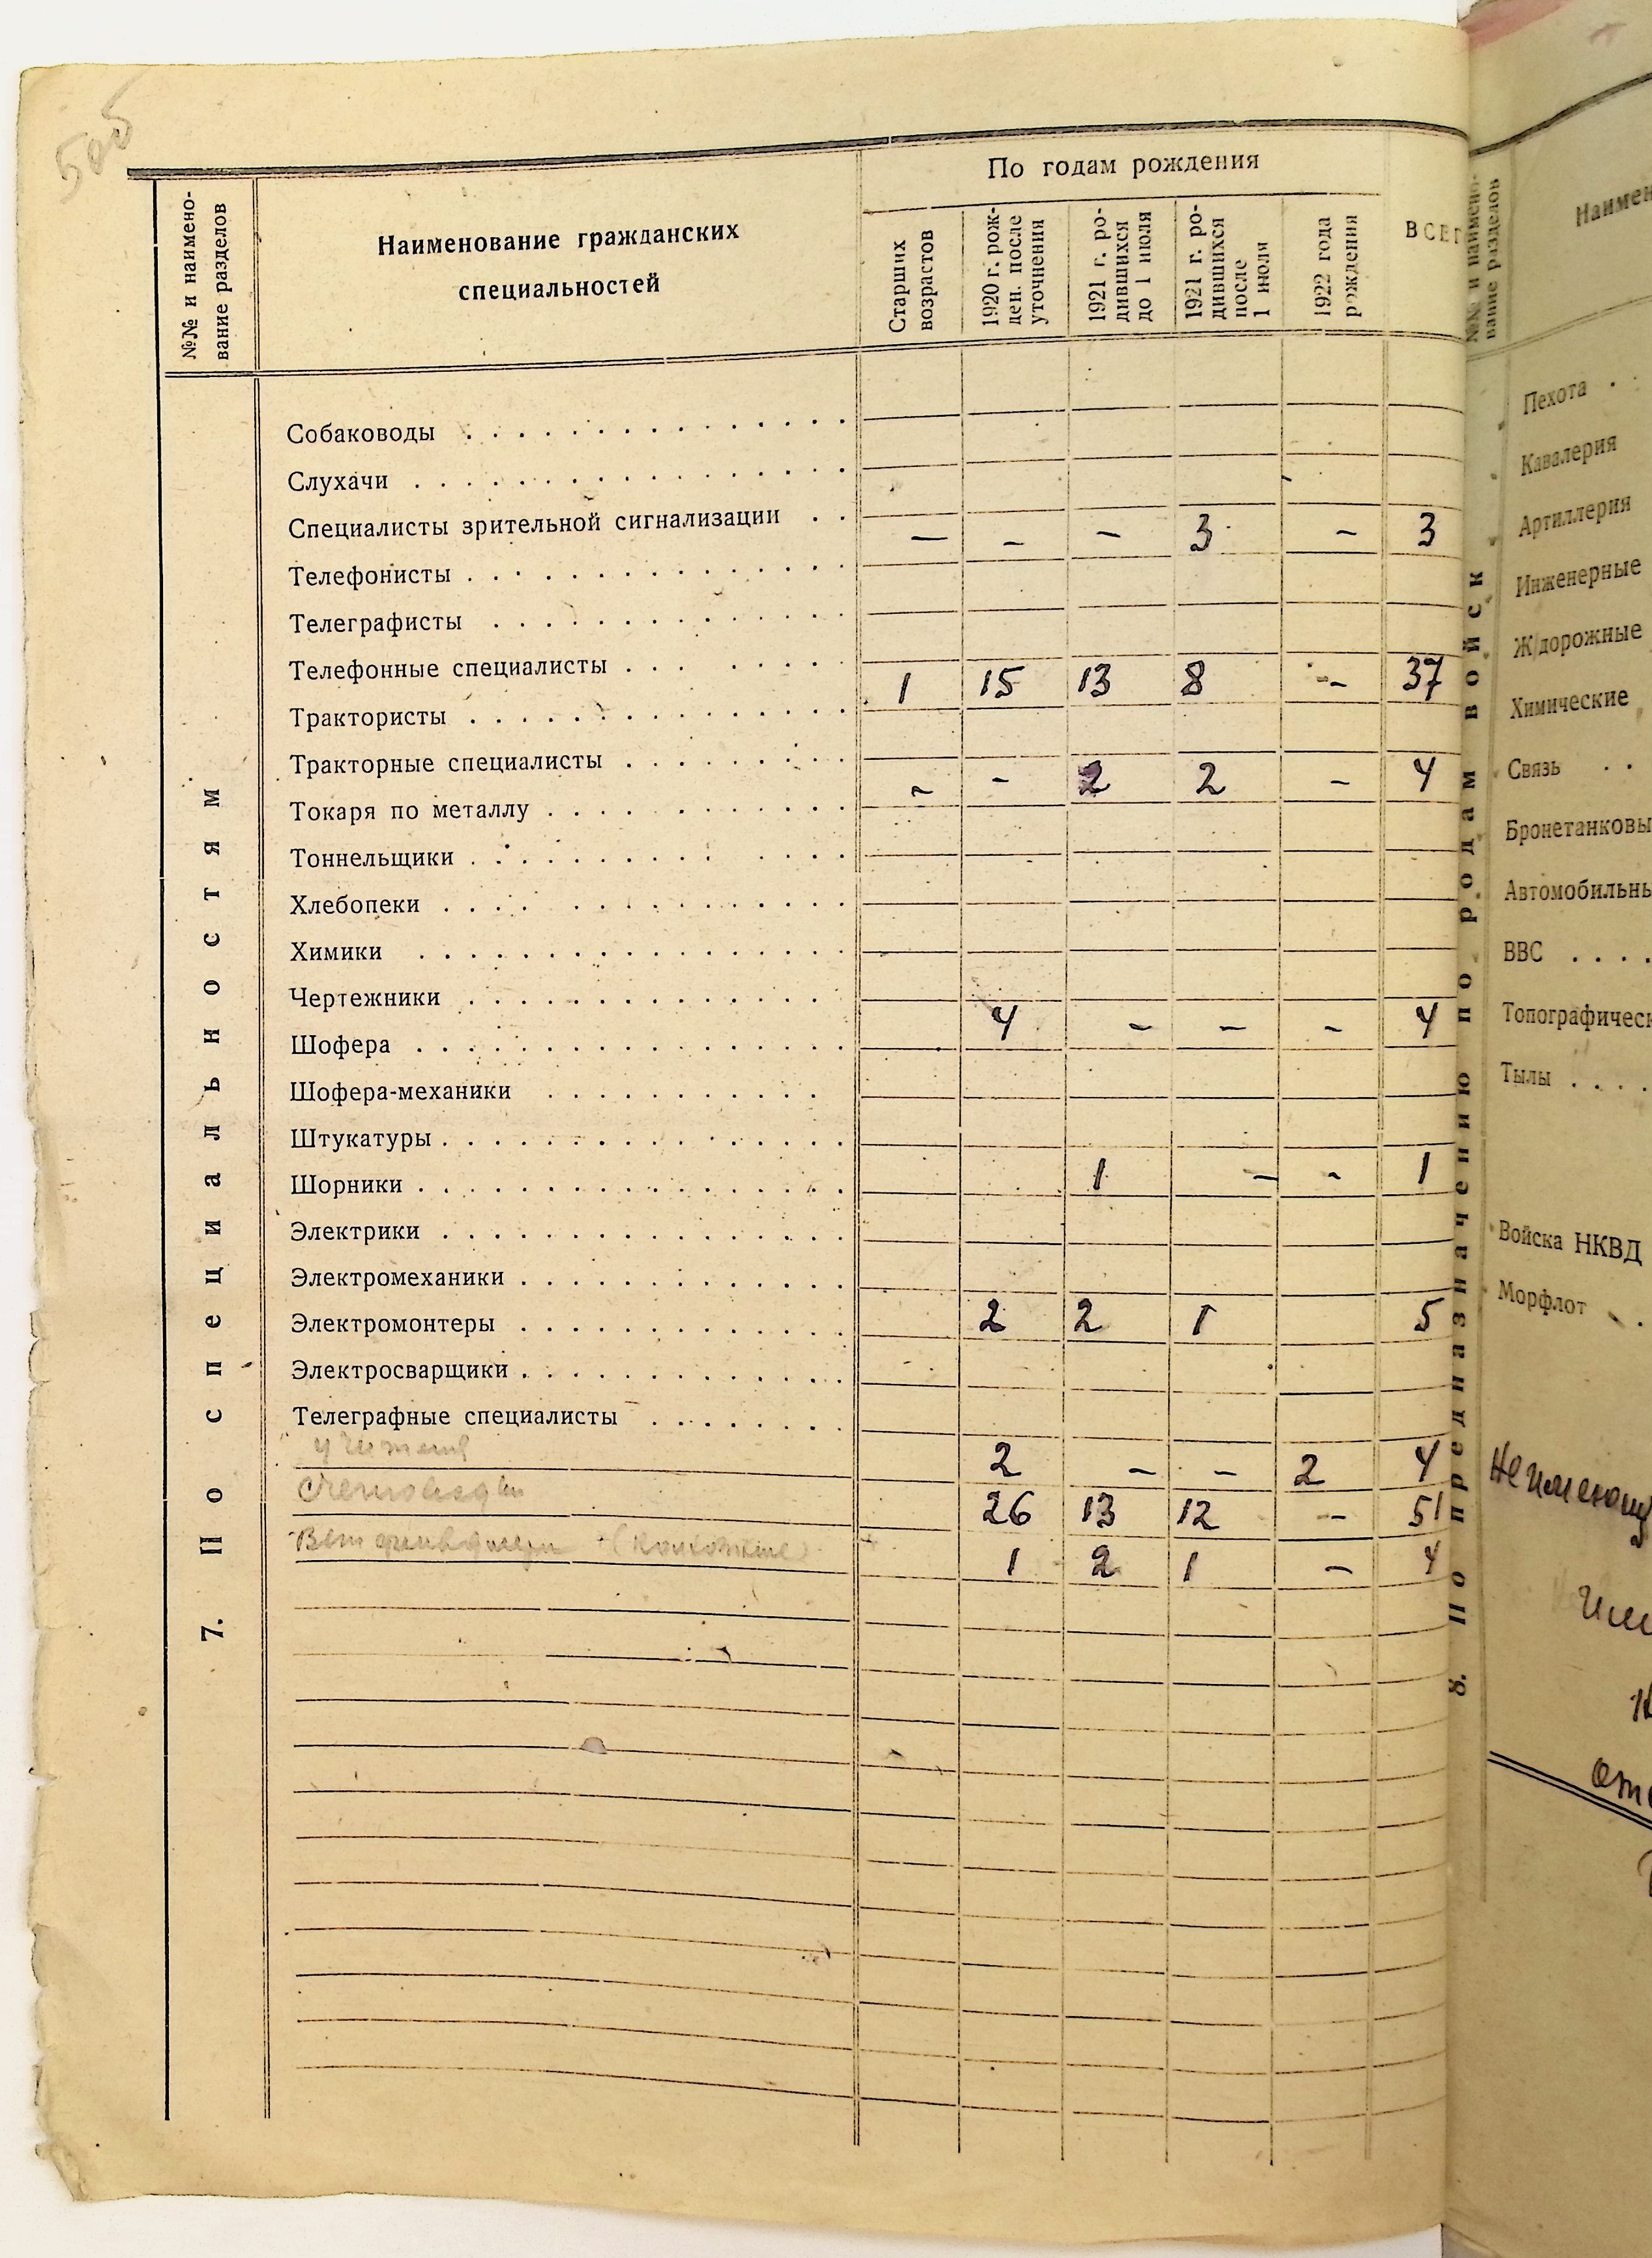 50об
№№ и наимено-
вание разделов
Наименование гражданских
специальностей
По годам рождения
Старших
возрастов
1920 г. рож-
ден. после
уточнения
1921 г. ро-
дившихся
до 1 июля
1921 г. ро-
дившихся
после
1 июля
1922 года
рождения
ВСЕГ
7. По специальностям
Собаководы . . . . . . . . . . . . . . .
Слухачи . . . . . . . . . . . . . . . . .
Специалисты зрительной сигнализации . . — – – 3 – 3
Телефонисты . . . . . . . . . . . . . . .
Телеграфисты . . . . . . . . . . . . . .
Телефонные специалисты . . . . . . . . 1 15 13 8 -- 37
Трактористы . . . . . . . . . . . . . . .
Тракторные специалисты . . . . . . . . . – – 2 2 – 4
Токаря по металлу . . . . . . . . . . .
Тоннельщики . . . . . . . . . . . . . .
Хлебопеки . . . . . . . . . . . . . . .
Химики . . . . . . . . . . . . . . . . .
Чертежники . . . . . . . . . . . . . . 4 – – – 4
Шофера . . . . . . . . . . . . . . . . .
Шофера-механики . . . . . . . . . . .
Штукатуры . . . . . . . . . . . . . . . .
Шорники . . . . . . . . . . . . . . . . . 1 – – 1
Электрики . . . . . . . . . . . . . . . .
Электромеханики . . . . . . . . . . . . .
Электромонтеры . . . . . . . . . . . . . 2 2 1 5
Электросварщики . . . . . . . . . . . . .
Телеграфные специалисты . . . . . . .
учителя 2 – – 2 4
26 13 12 – 51
1 2 1 – 4
№№ и наимено-
вание разделов
Наимен
8. По предназначению по родам войск
Пехота . .
Кавалерия
Артиллерия
Инженерные
Ж/дорожные
Химические
Связь . .
Бронетанковы
Автомобильны
ВВС . . . .
Топографическ
Тылы . . . .
Войска НКВД
Морфлот .
Не имеющ